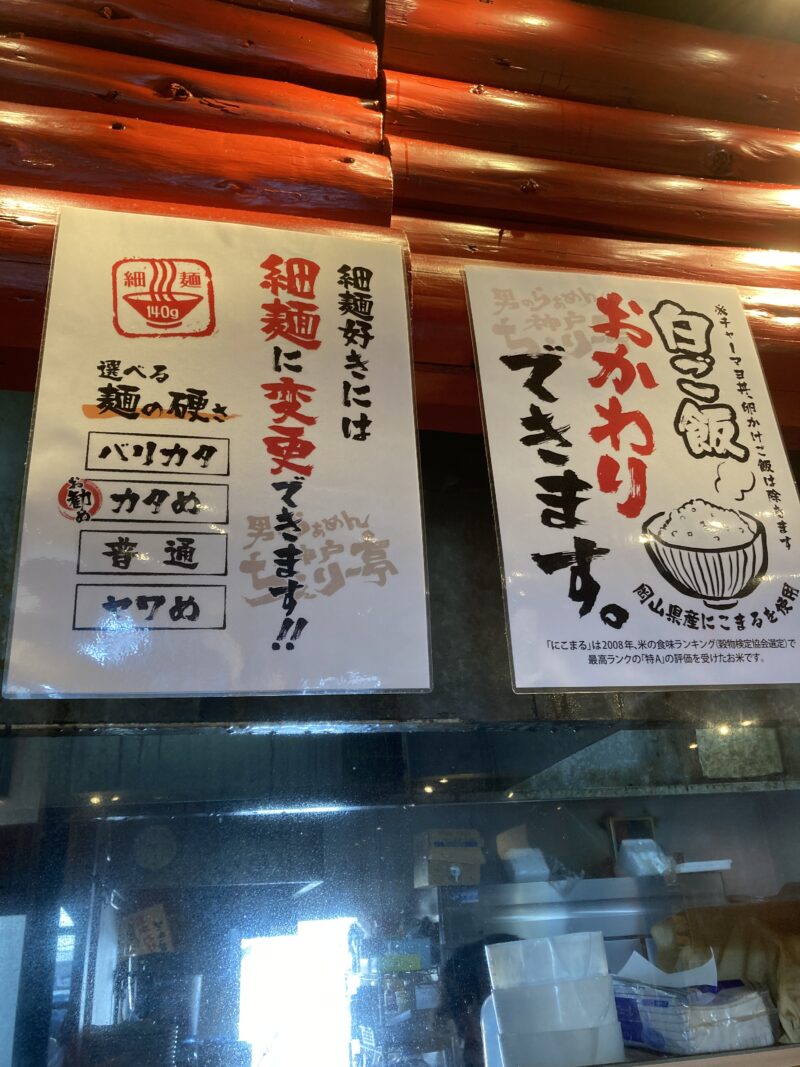 細麺
140g
細麺好きには
細麺に変更できます!!
選べる
麺の硬さ
バリカタ
お勧め
カタめ
普通
ヤワめ
男のらぁめん
神戸
ちぇりー亭
※チャーマヨ丼、卵かけご飯は除きます
白ご飯
おかわり
できます。
男のらぁめん
神戸
ちぇりー亭
岡山県産にこまるを使用
「にこまる」は2008年、米の食味ランキング(穀物検定協会選定)で
最高ランクの「特A」の評価を受けたお米です。